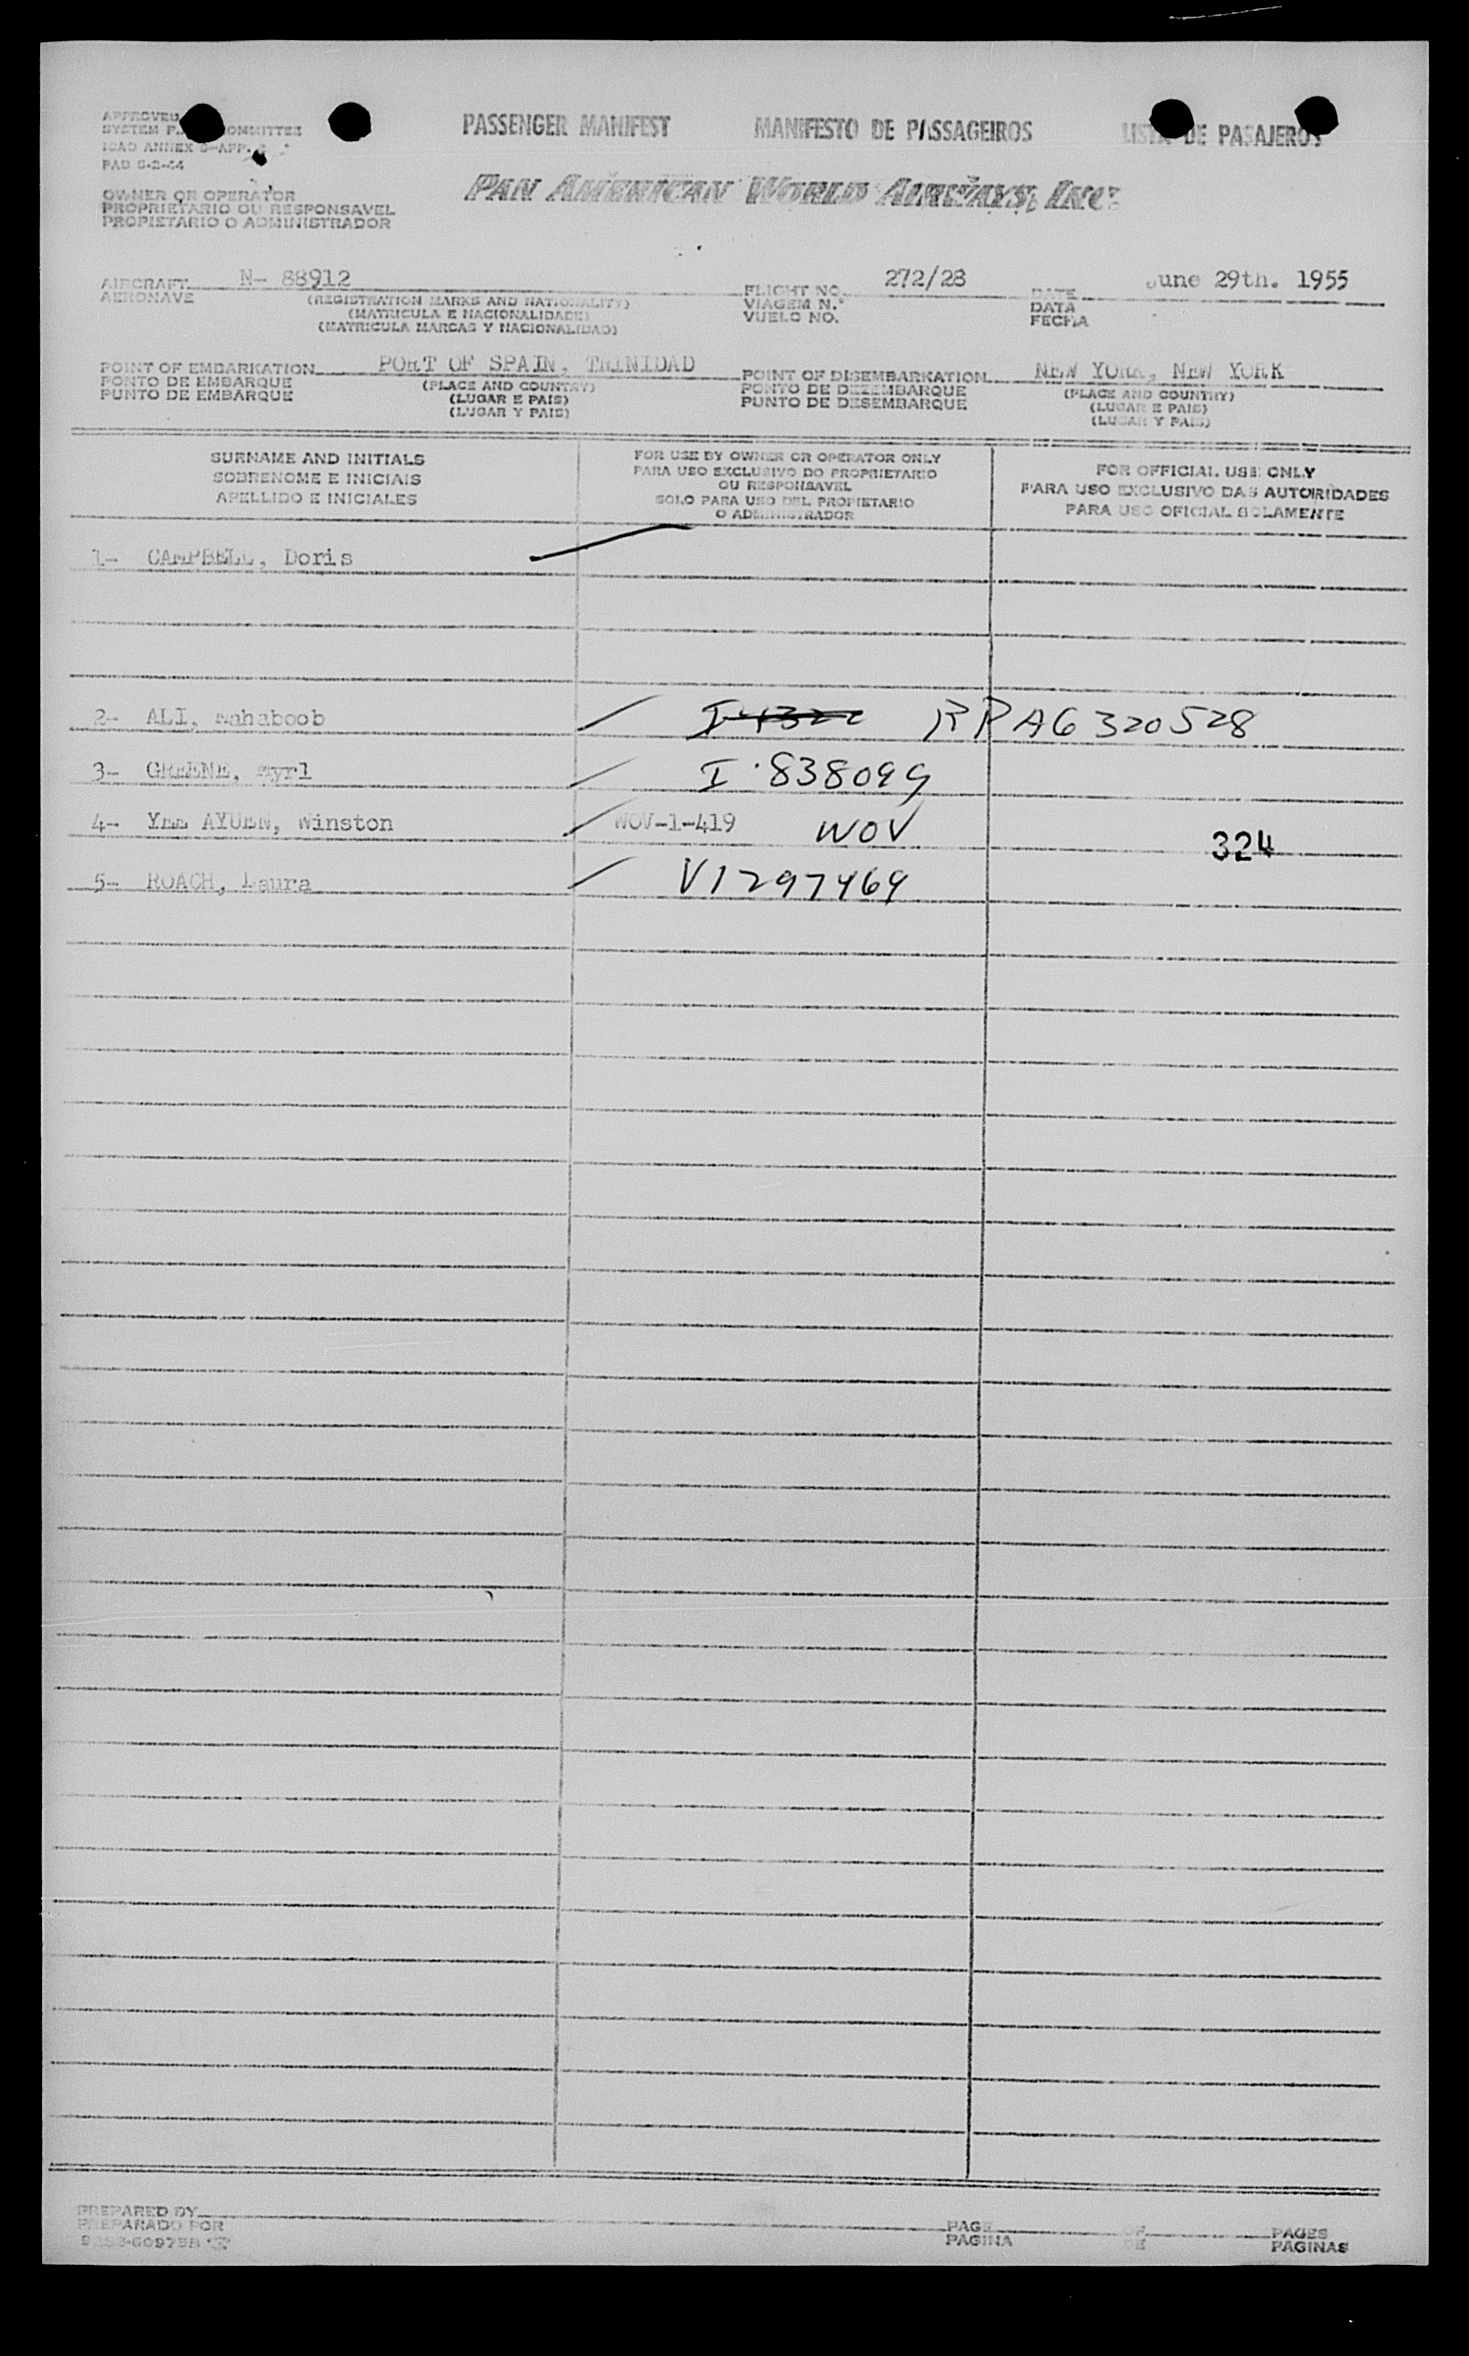 PASSENGER MANIFEST MANIFESTO DE PASSAGEIROS LISTA DE PASAJEROS
APPROVED
SYSTEM COMMITTEE
ICAO ANNEX
PAD 6-2-44
PAN AMERICAN WORLD AIRWAYS, INC.
OWNER OR OPERATOR
PROPRIETARIO OU RESPONSAVEL
PROPIETARIO O ADMINISTRADOR
AIRCRAFT N- 88912 FLIGHT NO. 272/28 DATE June 29th. 1955
AERONAVE (REGISTRATION MARKS AND NATIONALITY) VIAGEM N.° DATA
(MATRICULA E NACIONALIDADE) VUELO NO. FECHA
(MATRICULA MARCAS Y NACIONALIDAD)
POINT OF EMBARKATION PORT OF SPAIN, TRINIDAD POINT OF DISEMBARKATION NEW YORK, NEW YORK
PONTO DE EMBARQUE (PLACE AND COUNTRY) PONTO DE DEZEMBARQUE (PLACE AND COUNTRY)
PUNTO DE EMBARQUE (LUGAR E PAIS) PUNTO DE DESEMBARQUE (LUGAR E PAIS)
(LUGAR Y PAIS) (LUGAR Y PAIS)
SURNAME AND INITIALS FOR USE BY OWNER OR OPERATOR ONLY FOR OFFICIAL USE ONLY
SOBRENOME E INICIAIS PARA USO EXCLUSIVO DO PROPRIETARIO PARA USO EXCLUSIVO DAS AUTORIDADES
APELLIDO E INICIALES OU RESPONSAVEL PARA USO OFICIAL SOLAMENTE
SOLO PARA USO DEL PROPIETARIO
O ADMINISTRADOR
1- CAMPBELL, Doris
2- ALI, Mahaboob RPA6320528
3- GREENE, Myrl I·838099
4- YEE AYUEN, Winston WOV-1-419 WOV 324
5- ROACH, Laura V1297469
PREPARED BY PAGE OF PAGES
PREPARADO POR PAGINA DE PAGINAS